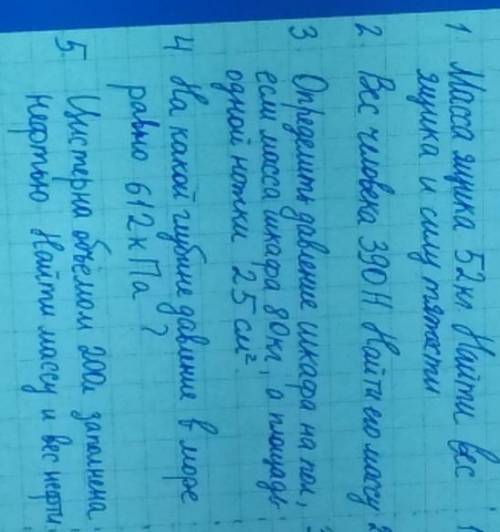 1 Масса ящика 52 кг Найти вес
ящика и силу тяжести
2. Вес человека 390 Н Найти его массу
3. Определить давление шкафа на пол,
если масса шкафа 80 кг, а площадь
одной ножки 25 см².
4 На какой глубине давление в море
равно 612 кПа ?
5. Цистерна объёмом 200л заполнена
нефтью Найти массу и вес нефти